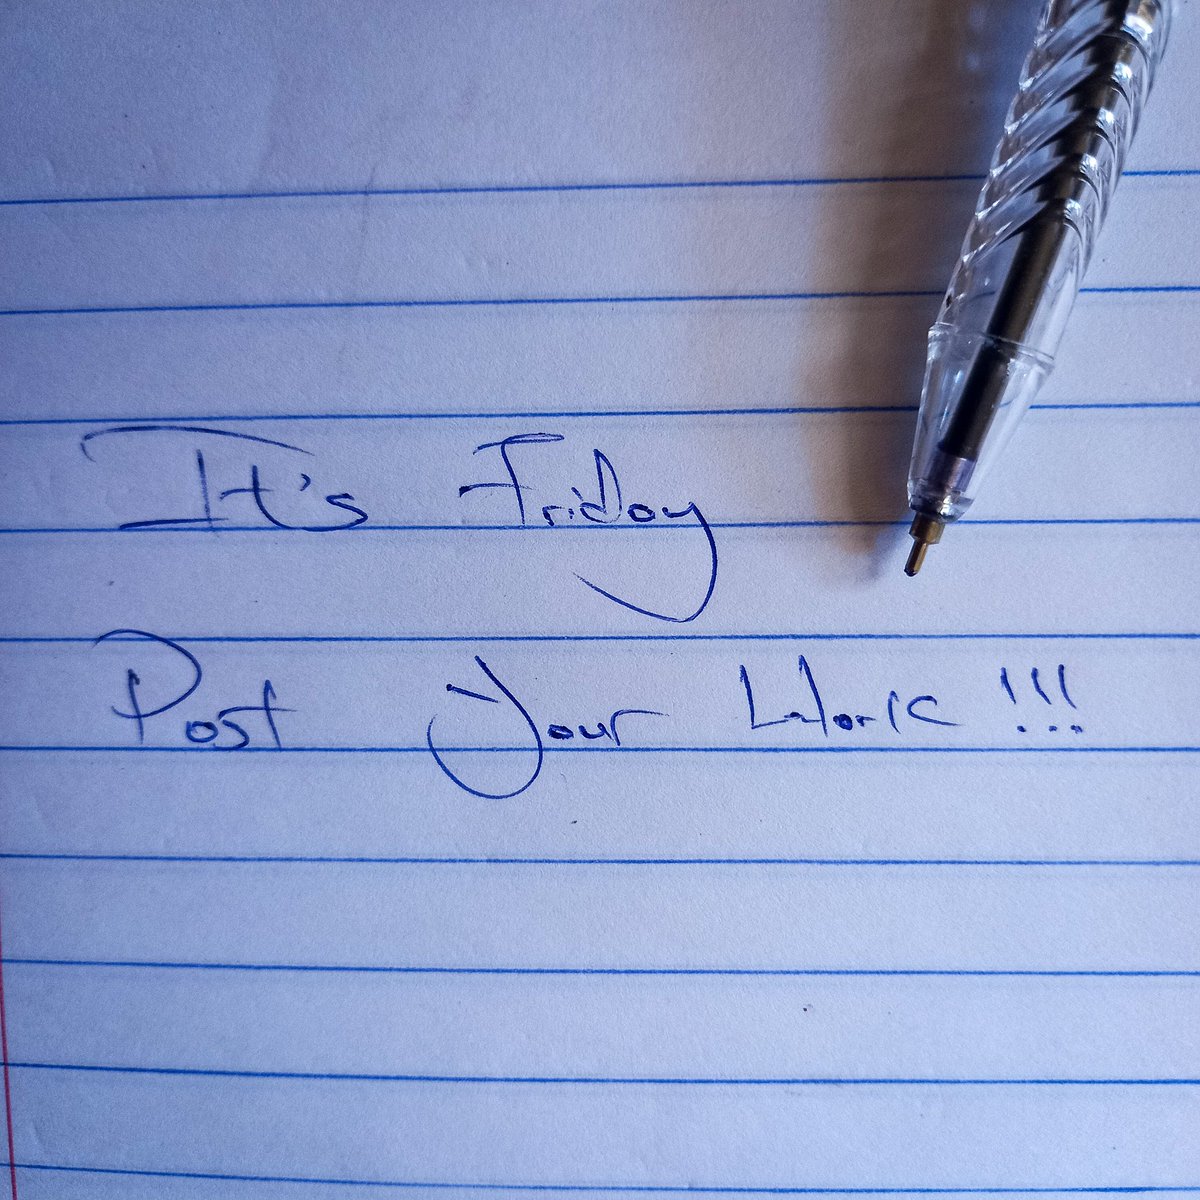 It's Friday
Post your Work !!!